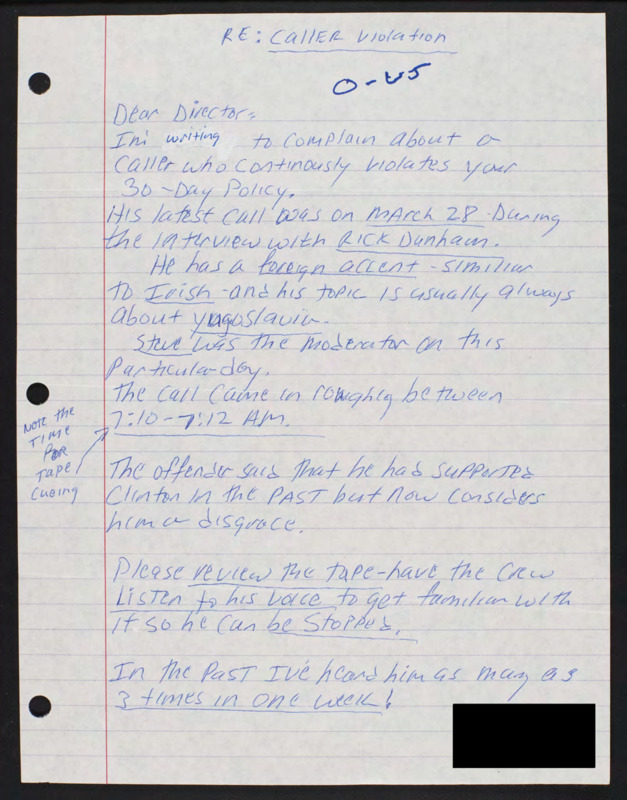 RE: CALLER Violation
O-US
Dear Director:
I'm writing to complain about a
Caller who continously violates your
30-Day Policy.
His latest call was on MArch 28 During
the interview with RICK Dunham.
He has a foreign accent - similiar
to Irish - and his topic is usually always
about yugoslavia.
Steve was the moderator on this
particular day.
The call came in roughly between
7:10-7:12 AM.
Note the
Time
FOR
Tape
Cueing
The offender said that he had supported
Clinton in the PAST but now considers
him a disgrace.
Please review the tape-have the crew
Listen to his voice to get familiar with
it so he can be stopped.
In the PAST I've heard him as many as
3 times in one week!